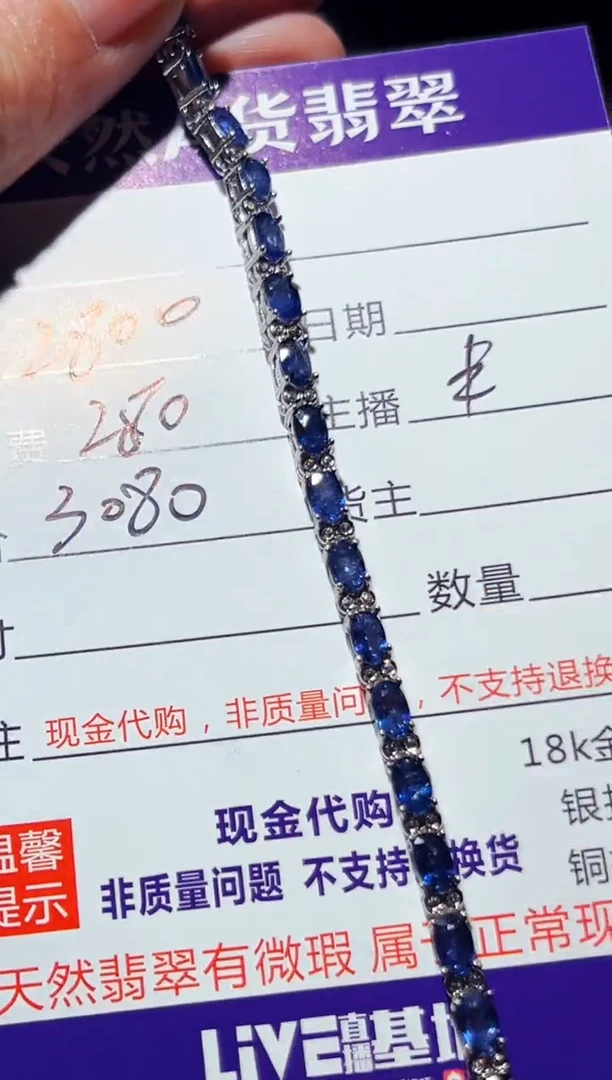 天然A货翡翠
2800
日期
费 280
主播
3080
货主
数量
寸
注 现金代购，非质量问 ，不支持退换
18k金
现金代购
银
温馨
提示
非质量问题 不支持 换货
铜
天然翡翠有微瑕 属于正常现
LiVE直播基地